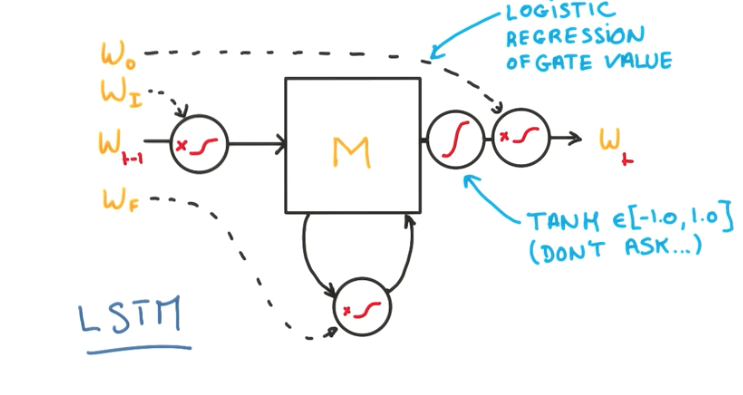 LOGISTIC
REGRESSION
OF GATE VALUE
W₀
W_I
W_t-1
M
W_t
W_F
TANH ∈[-1.0, 1.0]
(DON'T ASK...)
LSTM